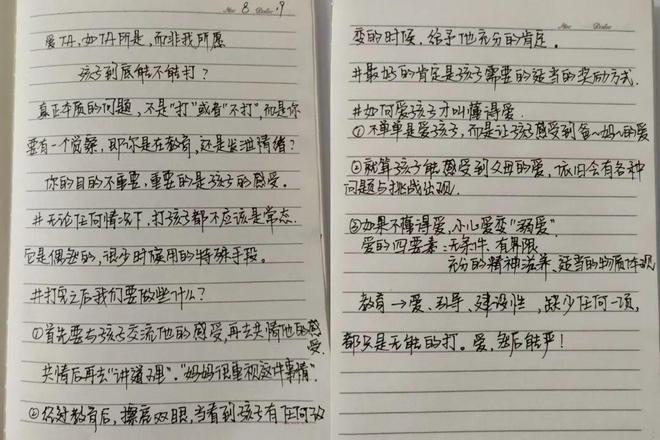 No.
Date. 8.9
爱TA,如TA所是,而非我所愿
孩子到底能不能打?
真正本质的问题,不是"打"或者"不打",而是你
要有一个觉察,那你是在教育,还是发泄情绪?
你的目的不重要,重要的是孩子的感受。
#无论任何情况下,打孩子都不应该是常态.
它是偶然的,很少时候用的特殊手段。
#打完之后我们要做些什么?
①首先要与孩子交流他的感受,再去共情他的感受.
共情后再去"讲道理"."妈妈很重视这件事情".
②经过教育后,擦亮双眼,当看到孩子有任何改
No.
Date.
变的时候,给予他充分的肯定。
#最好的肯定是孩子需要的适当的奖励方式.
#如何爱孩子才叫懂得爱.
①不单单是爱孩子,而是让孩子感受到爸~妈~的爱
②就算孩子能感受到父母的爱,依旧会有各种
问题与挑战出现.
③如果不懂得爱,小心爱变"溺爱".
爱的四要素:无条件、有界限
充分的精神滋养、适当的物质体现
教育→爱、引导、建设性,缺少任何一项,
都只是无能的打。爱,然后能严!